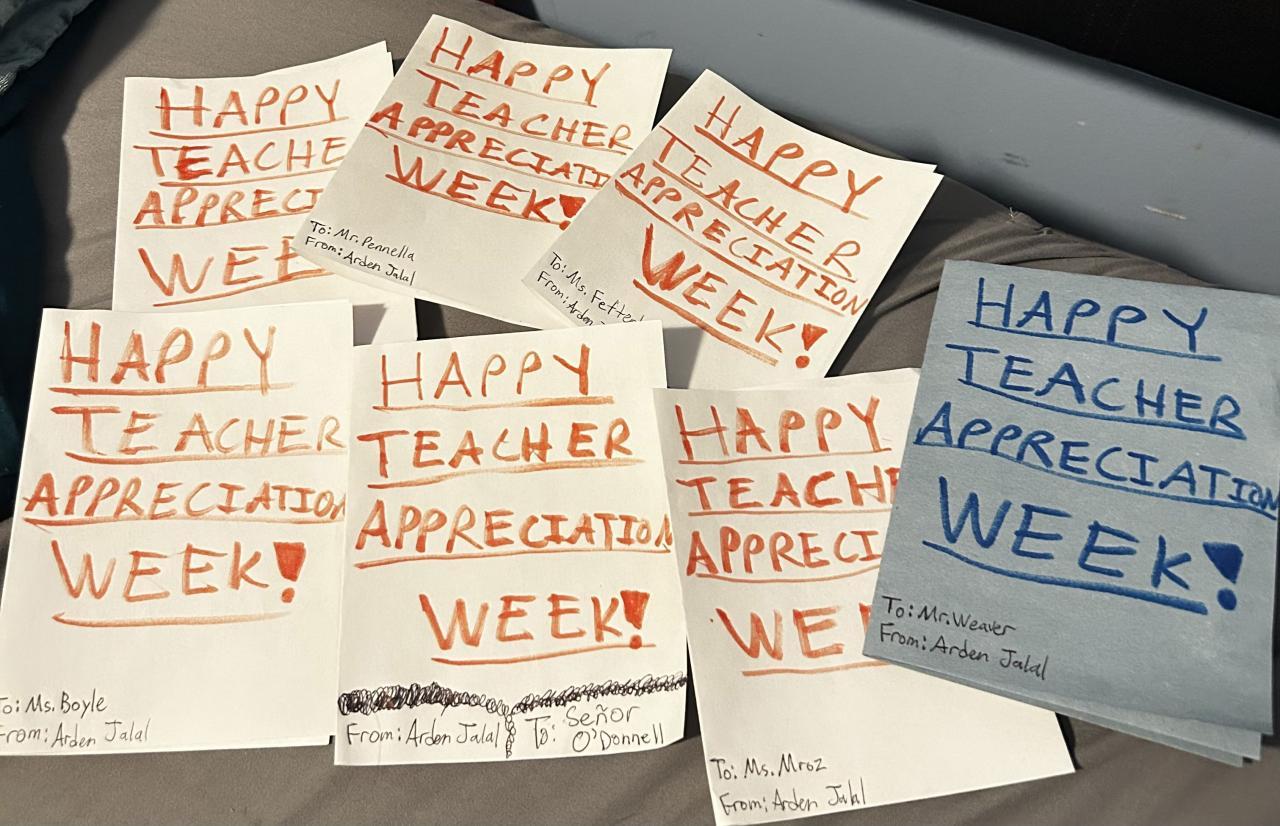 HAPPY
TEACHE
APPRECI
WEE
HAPPY
TEACHER
APPRECIATI
WEEK!
To: Mr. Pennella
From: Arden Jalal
HAPPY
TEACHER
APPRECIATION
WEEK!
To: Ms.
From: Arden
HAPPY
TEACHER
APPRECIATION
WEEK!
To: Mr. Weaver
From: Arden Jalal
HAPPY
TEACHER
APPRECIATION
WEEK!
To: Ms. Boyle
From: Arden Jalal
HAPPY
TEACHER
APPRECIATION
WEEK!
From: Arden Jalal
To: Señor
O'Donnell
HAPPY
TEACH
APPRECI
WE
To: Ms. Mroz
From: Arden Jalal